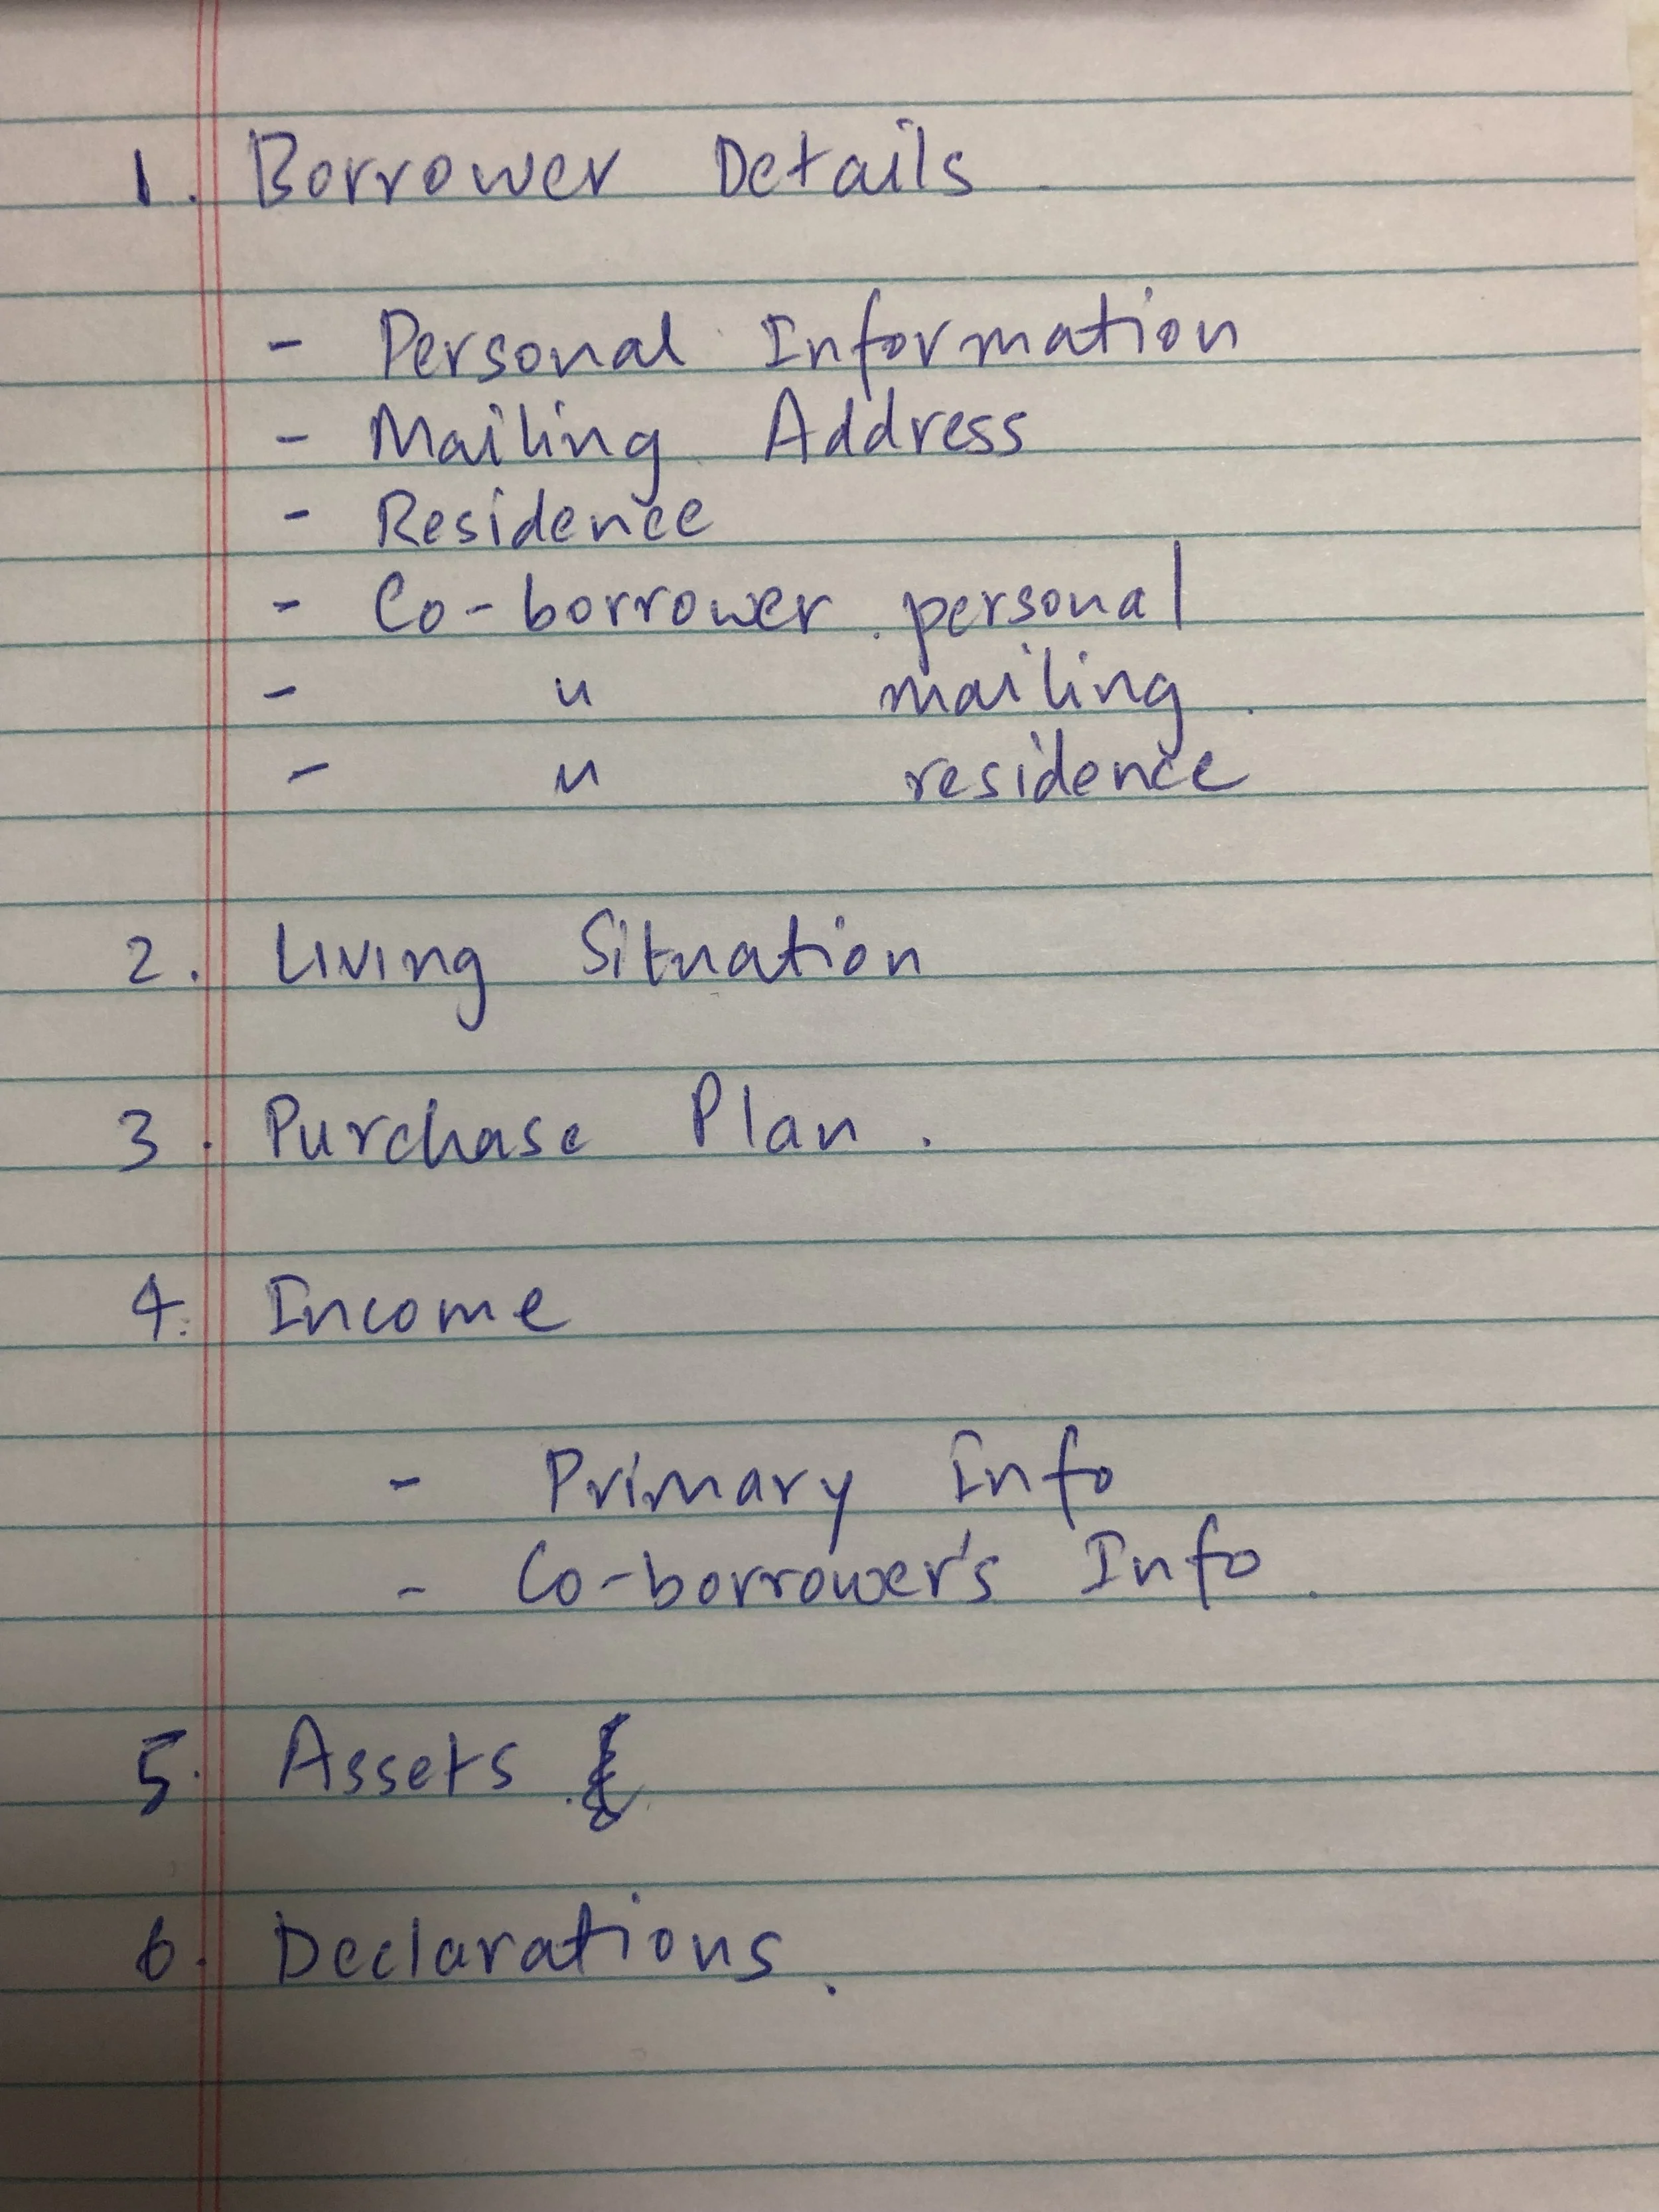 1. Borrower Details
- Personal Information
- Mailing Address
- Residence
- Co-borrower personal
- " mailing
- " residence
2. Living Situation
3. Purchase Plan.
4. Income
- Primary Info
- Co-borrower's Info.
5. Assets
6. Declarations.